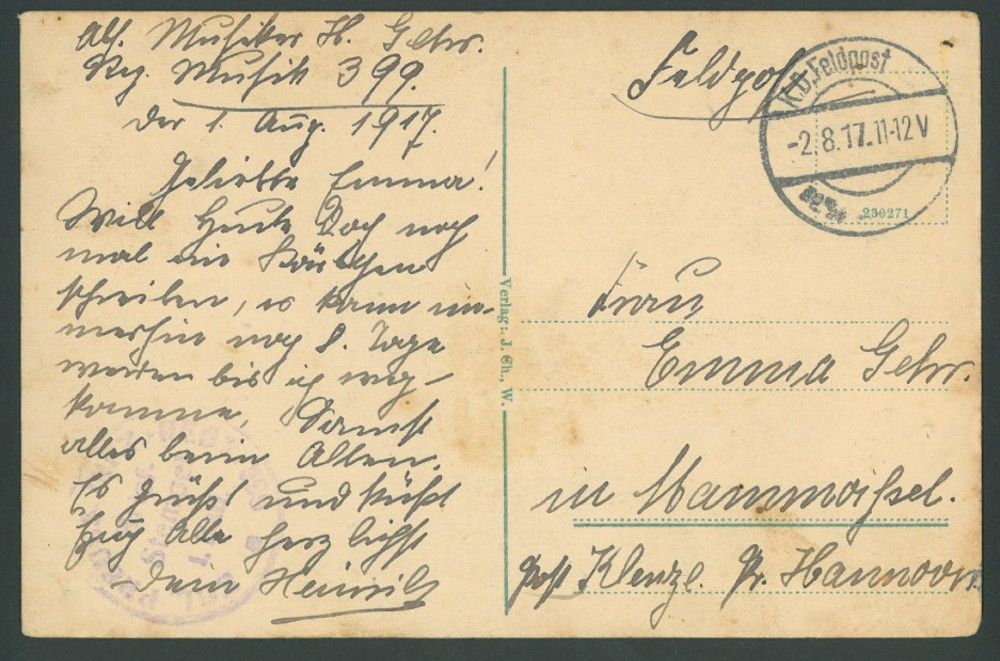 Abs. Musiker H. Gehr.
Reg. Musik 399.
den 1. Aug. 1917.
Geliebte Emma!
Will Heute Doch noch
mal ein Kärtchen
schreiben, es kann im-
merhin noch 8. Tage
werden bis ich weg-
komme, Sonst
alles beim Alten.
Es grüßt und küßt
Euch Alle herzlichst
Dein Heinrich
Verlag: J. Ch., W.
Feldpost
K.D. Feldpost
-2.8.17.11-12V
230271
Frau
Emma Gehr.
in
Post Klenze. Pr. Hannover.